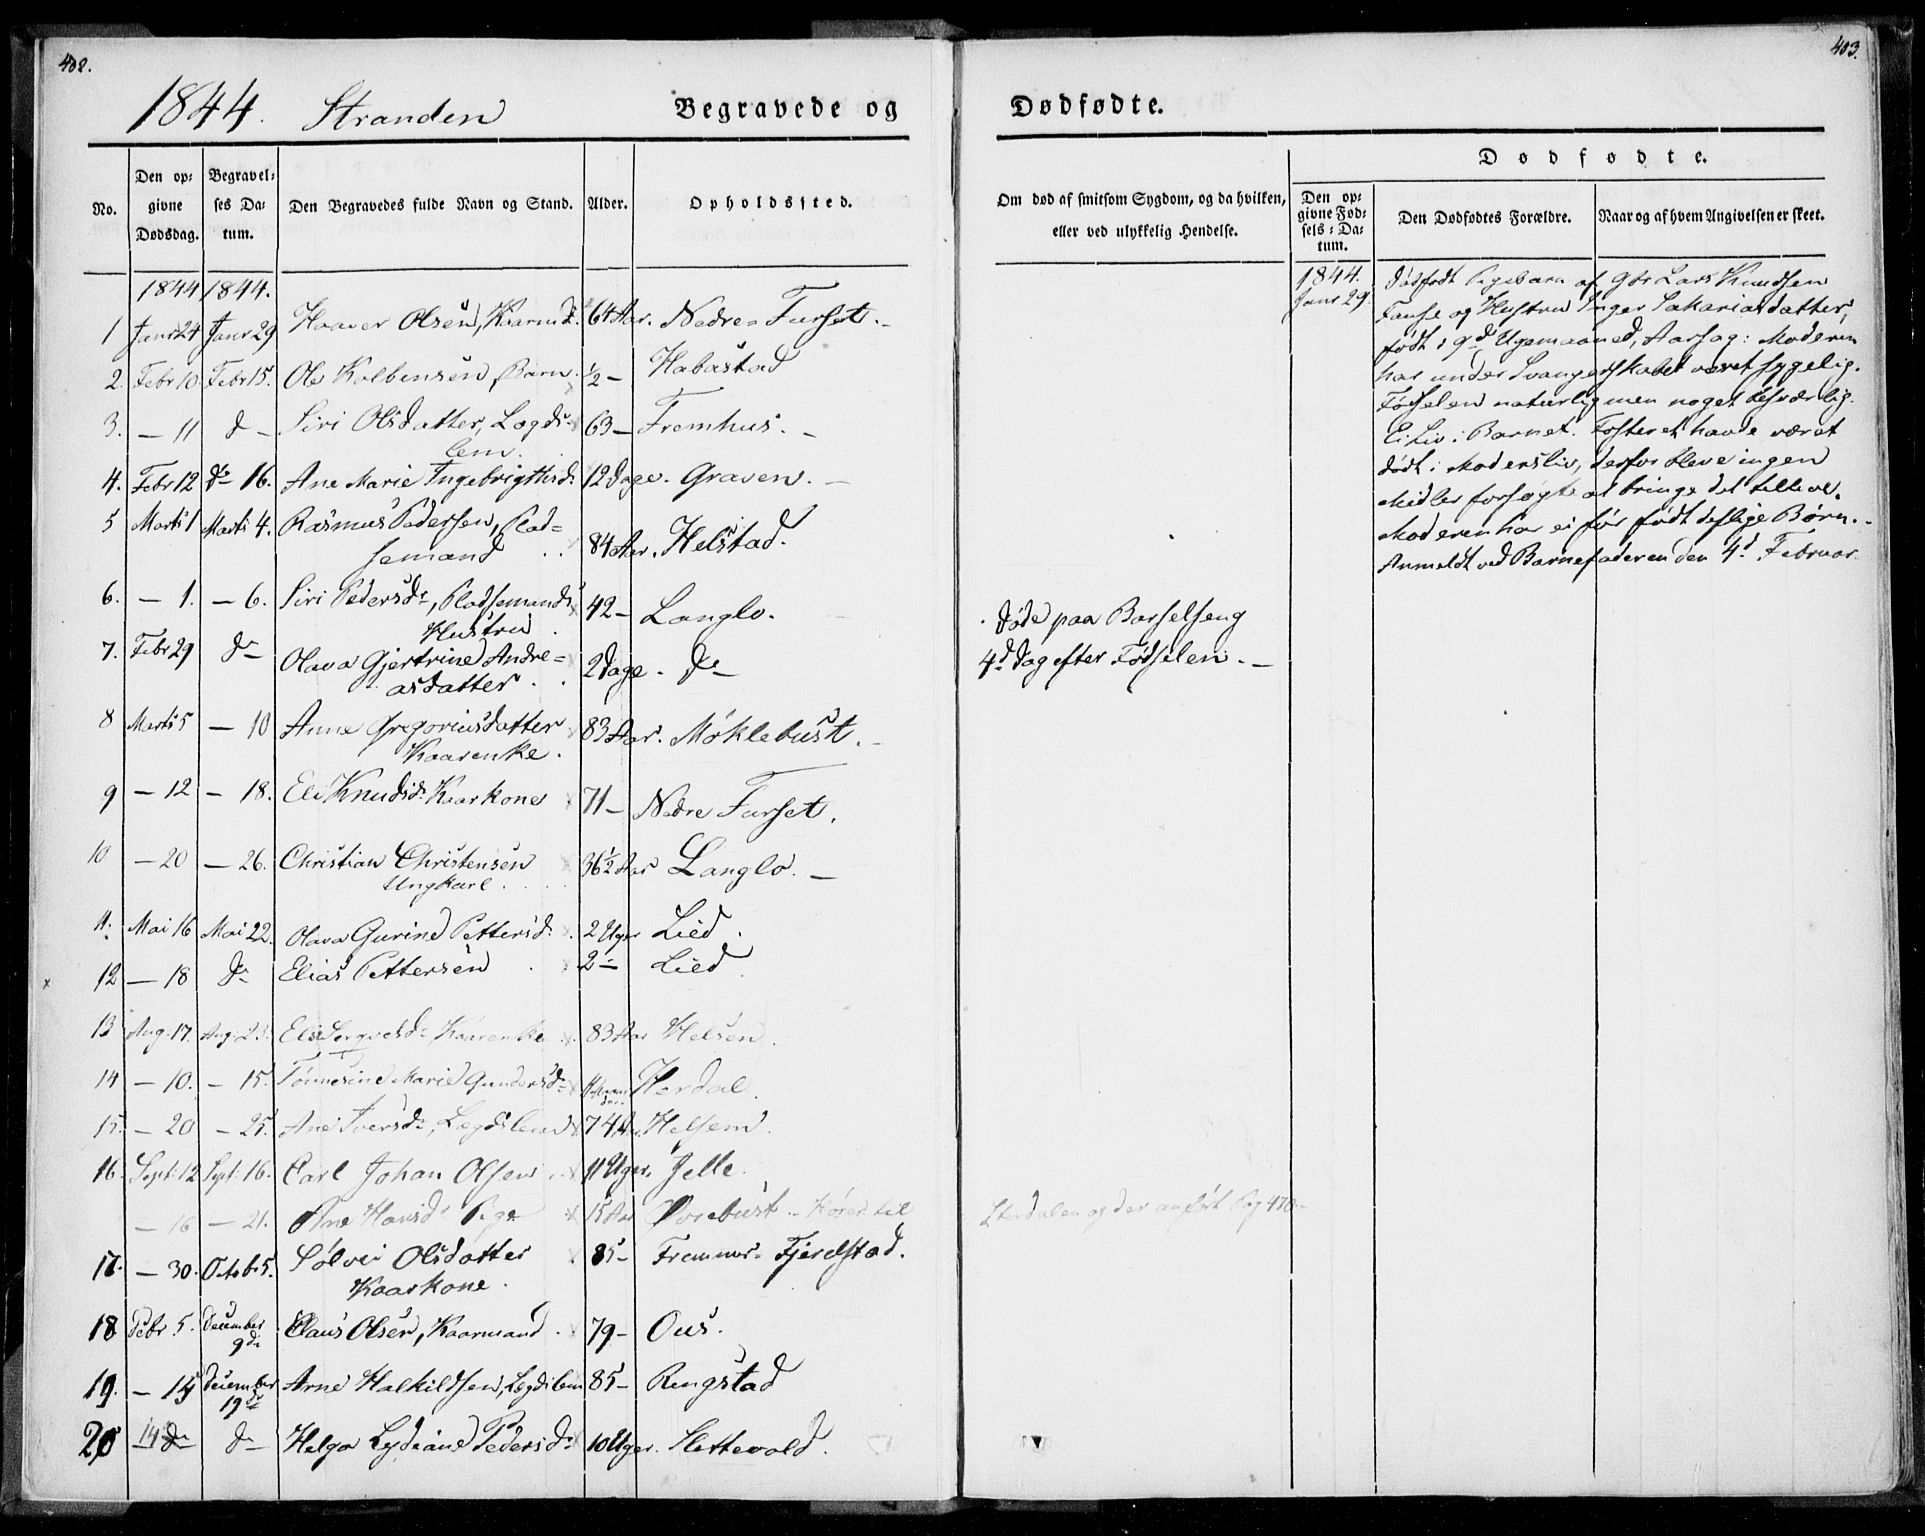 402.
1844. Stranden Begravede og
No. Den opgivne Dødsdag. Begravelses Datum. Den Begravedes fulde Navn og Stand. Alder. Opholdssted.
1844 1844.
1 Janr 24 Janr 29 Haaver Olsen, Kaarmd. 64 Aar. Nedre Furset.
2. Febr 10. Febr 15. Ole Kolbensen, Barn. ½ – Habostad
3. – 11 d – Siri Olsdatter, Lægds-
lem. 63 – Fremhus. –
4. Febr 12 d 16. Ane Marie Ingebrigtsd. 12 Dage. Graven. –
5 Marts 1 Marts 4. Rasmus Pedersen, Plad=
semand 84 Aar. Helstad.
6. – 1. – 6. Siri Pedersd., Pladsemands
Hustru 42 – Langlo.
7. Febr 29 d – Olava Gjertrine Andre=
asdatter 2 Dage. d –
8 Marts 5 – 10 Anne Gregoriusdatter
Kaarenke. 83 Aar. Møklebust. –
9 – 12 – 18. Eli Knudsd. Kaarkone 71 – Nedre Furset.
10 – 20 – 26. Christian Christensen
Ungkarl. 36½ Aar Langlo. –
11. Mai 16 Mai 22. Olava Gurine Pettersd. 2 Uger Lied.
12 – 18 d Elias Pettersen 2 – Lied
13 Aug. 17. Aug. 23. Kaarenke 83 Aar Helsem.
14 – 10. – 15. Tønnesine Marie Gundersd. Herdal.
15. – 20 – 25. Ane Iversd., Legdslem 74 Aar Helsem.
16. Sept. 12 Sept. 16. Carl Johan Olsen 11 Uger. Jelle.
– 16 – 21. Ane Hansd. Pige 15 Aar Overbust – Hører til
17. – 30. Octob 5. Sølvei Olsdatter
Kaarkone. 85 – Fremmer Fjerdstad.
18 Debr 5. December
9d. Claus Olsen, Kaarmand 79 – Ous.
19. – 14 December
19d Arne Halkildsen, Legdslem 85 – Ringstad
20 14 d d – Helga Lydiane Pedersd. 10 Uger. Slettevold.
403.
Dødfødte.
Om død af smitsom Sygdom, og da hvilken, eller ved ulykkelig Hendelse.
Dødfødte.
Den opgivne Fødsels-Datum. Den Dødfødtes Forældre. Naar og af hvem Angivelsen er skeet.
1844.
Janr 29. Dødfødt Pigebarn af Gbr Lars Knudsen
Fause og Hustru Inger Sakariasdatter,
født i 9d Ugemaaned, Aarsag: Moderen
har under Svangerskabet været sygelig.
Fødselen naturlig men noget besværlig.
Ei Liv i Barnet. Fosteret havde været
dødt i Modersliv, derfor bleve ingen
Midler forsøgte at bringe det tillive.
Moderen har ei før født deslige Børn. –
Anmeldt ved Barnefaderen den 4d Februar
Døde paa Barselseng
4d Dag efter Fødselen. –
Stordalen og der anført Pag 410